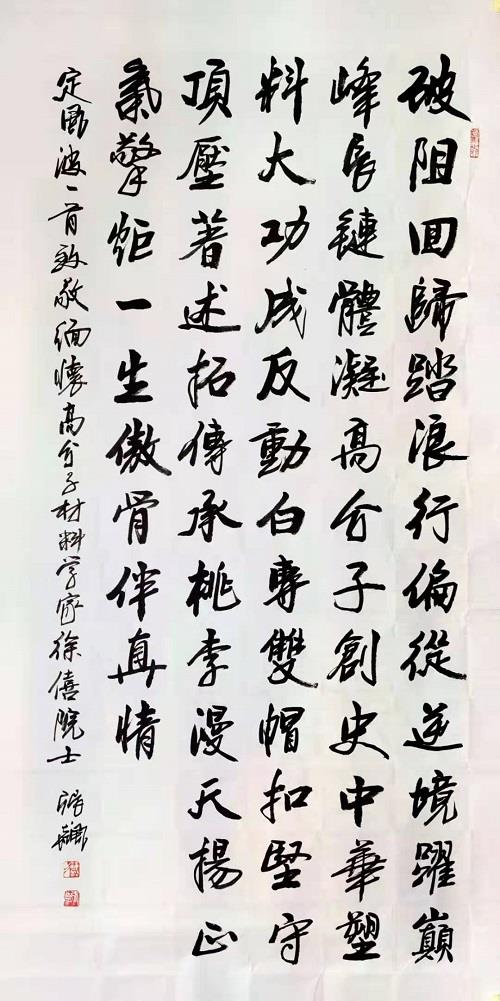 破阻回歸踏浪行偏從逆境躍巔
峰長鏈體凝高分子創史中華塑
料大功成反動白專雙帽扣堅守
頂壓著述拓傳承桃李漫天楊正
氣擎炬一生傲骨伴真情
定風波一首致敬缅懷高分子材料学家徐僖院士